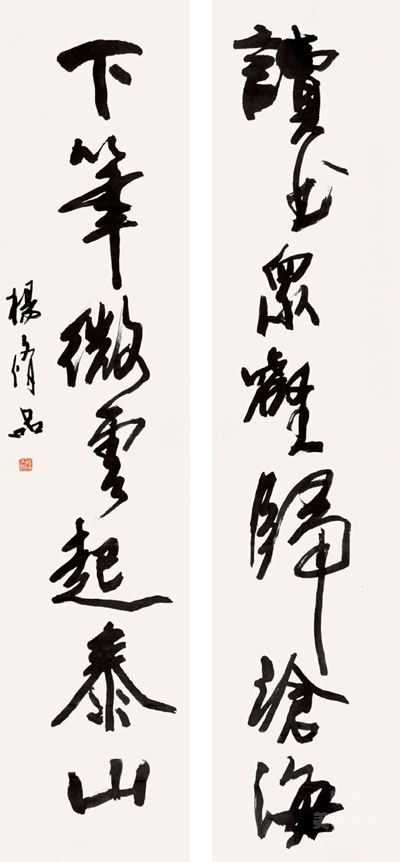 讀書眾壑歸滄海
下筆微雲起泰山
楊脩品